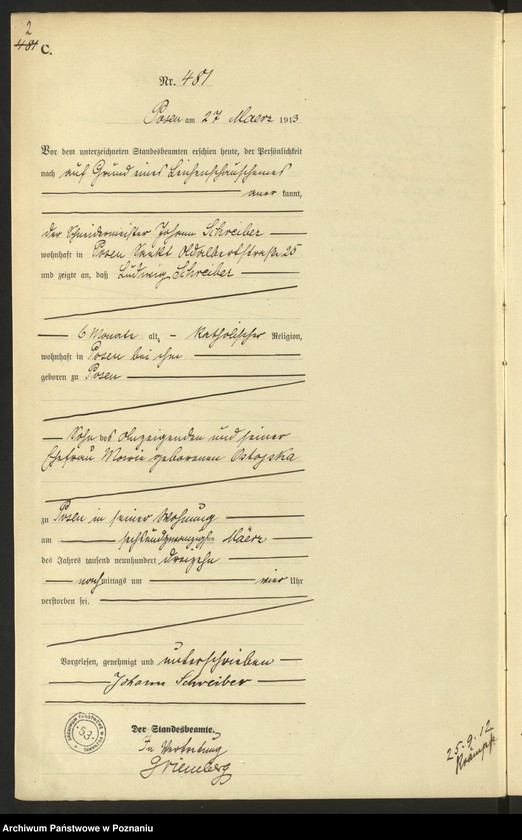 2
481
C.
Nr. 481
Posen am 27 Maerz 1913
Vor dem unterzeichneten Standesbeamten erschien heute, der Persönlichkeit
nach auf Grund eines Leichenschauscheines
aner kannt,
der Schneidermeister Johann Schreiber
wohnhaft in Posen Sankt Adalbertstraße 25
und zeigte an, daß Ludwig Schreiber
6 Monate alt, katholischer Religion,
wohnhaft in Posen bei ihm
geboren zu Posen
Sohn des Anzeigenden und seiner
Ehefrau Marie geborenen
zu Posen in seiner Wohnung
am sechsundzwanzigsten Maerz
des Jahres tausend neunhundert dreizehn
nachmittags um vier Uhr
verstorben sei.
Vorgelesen, genehmigt und unterschrieben
Johann Schreiber
Der Standesbeamte.
In Vertretung
53
25.9.12
Archiwum Państwowe w Poznaniu